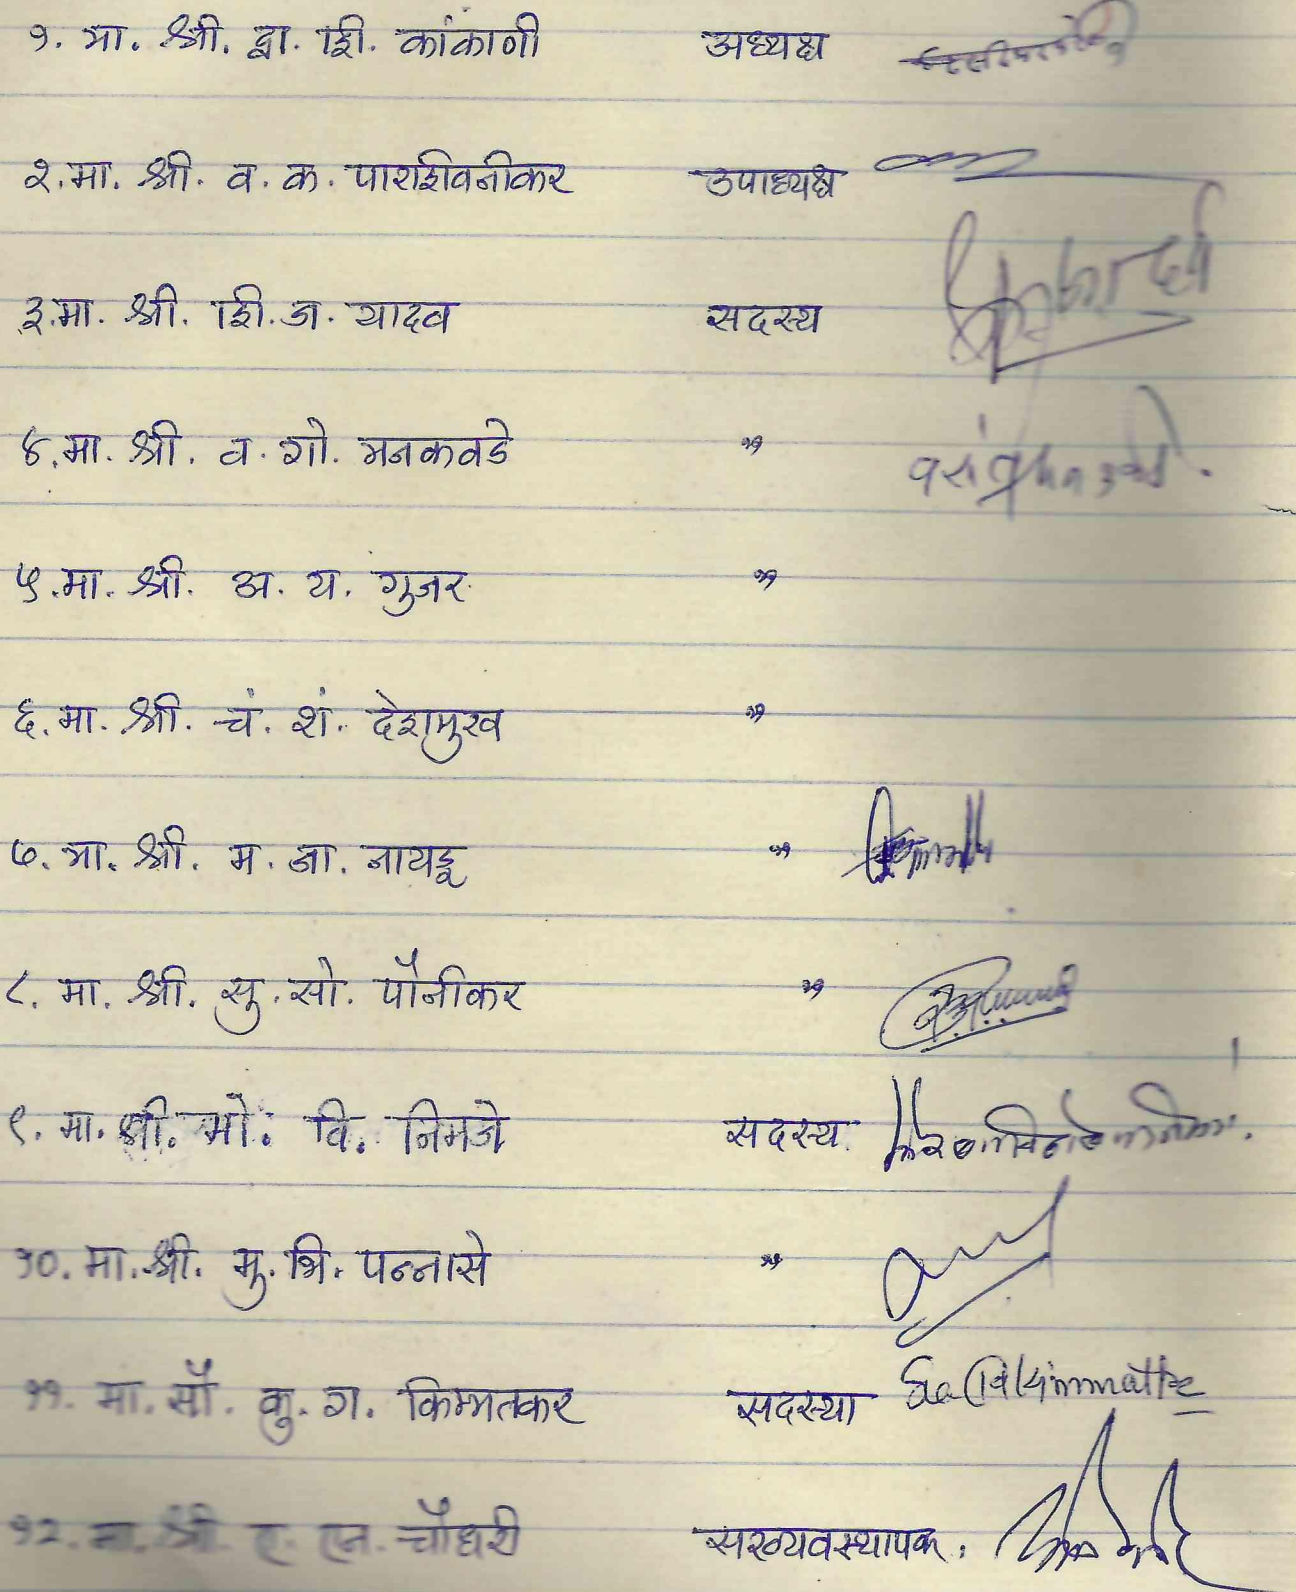 १. मा. श्री. द्वा. शि. कांकाणी अध्यक्ष
२. मा. श्री. व. क. पाराशिवनीकर उपाध्यक्ष
३. मा. श्री. शि. ज. यादव सदस्य
४. मा. श्री. व. गो. मनकवडे "
५. मा. श्री. अ. य. गुजर "
६. मा. श्री. चं. शं. देशमुख "
७. मा. श्री. म. जा. नायडू "
८. मा. श्री. सु. सो. पौनीकर "
९. मा. श्री. मो. वि. निमजे सदस्य
१०. मा. श्री. मु. भि. पन्नासे "
११. मा. सौ. कु. ग. किम्मतकर सदस्या
१२. मा. श्री ए. एन. चौधरी सरव्यवस्थापक.